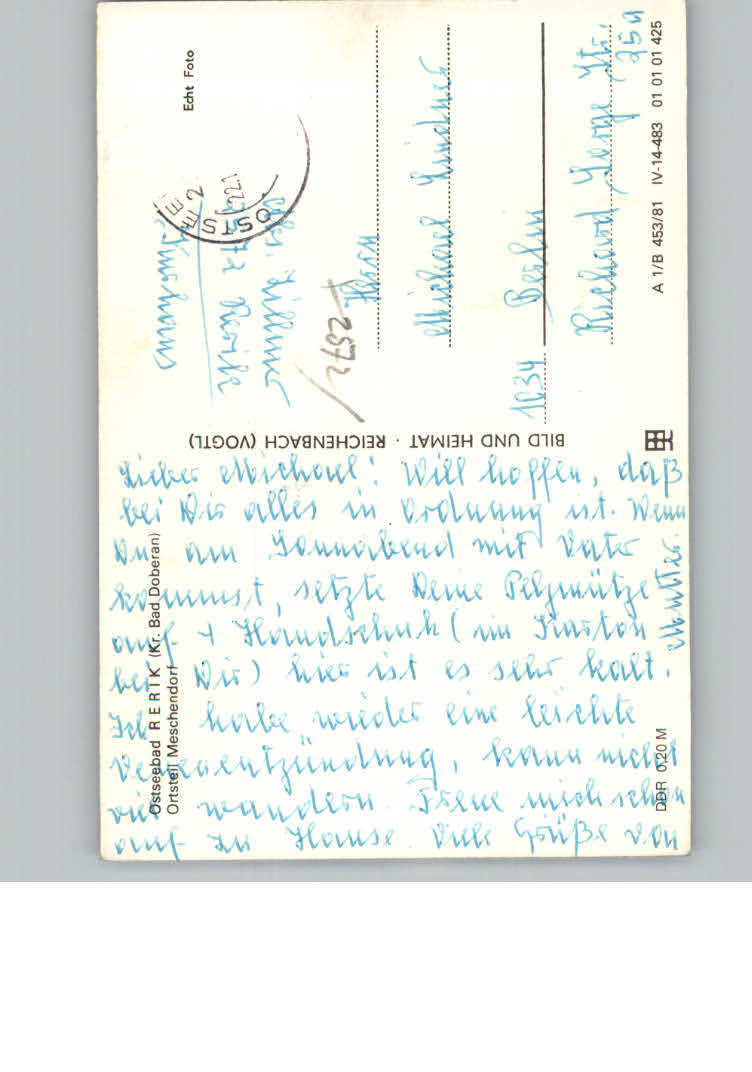 Lieber Michael! Will hoffen, daß
bei Dir alles in Ordnung ist. Wenn
Du am Sonnabend mit Vater
kommst, setzte Deine Pelzmütze
auf + Handschuh (im Karton
bei Dir) hier ist es sehr kalt.
Ich habe wieder eine leichte
Venenentzündung, kann nicht
viel wandern. Freue mich schon
auf zu Hause. Viele Grüße von
Mutter.
Ostseebad RERIK (Kr. Bad Doberan)
Ortsteil Meschendorf
DDR 0,20 M
BILD UND HEIMAT · REICHENBACH (VOGTL)
Echt Foto
Abs.
Rerik
OSTSEE
2572
Herrn
Michael Lindner
1034 Berlin
Richard Sorge Str.
25a
A 1/B 453/81 IV-14-483 01 01 01 425